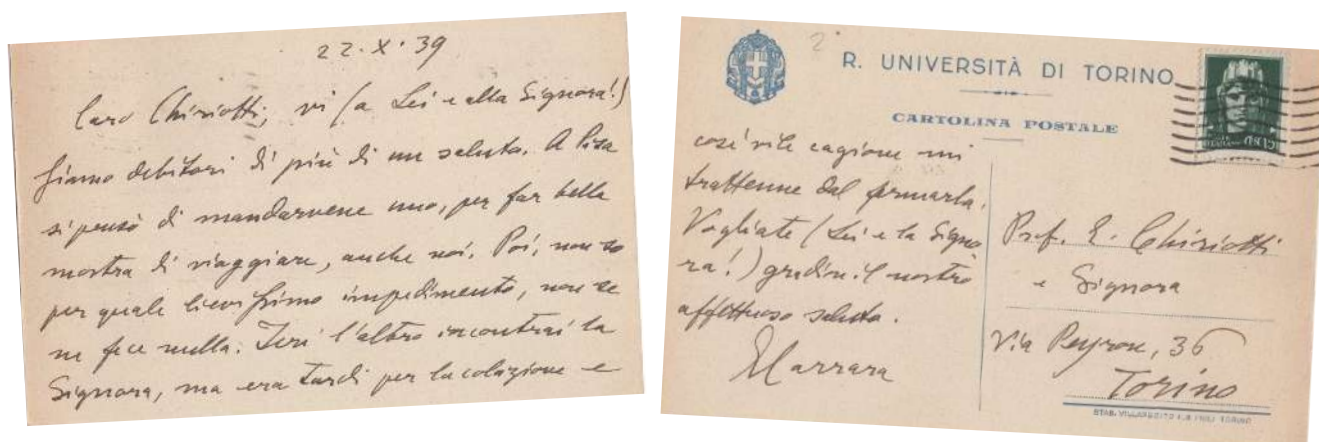 22·X·39
Caro Chiriotti, vi (a Lei e alla Signora!)
siamo debitori di più di un saluto. A Pisa
si pensò di mandarvene uno, per far bella
mostra di viaggiare, anche noi. Poi, non so
per quale lievissimo impedimento, non se
ne fece nulla. Ieri l'altro incontrai la
Signora, ma era tardi per la colazione e
R. UNIVERSITÀ DI TORINO
CARTOLINA POSTALE
così vile cagione mi
trattenne dal fermarla.
Vogliate (Lei e la Signo
ra!) gradire il nostro
affettuoso saluto.
Prof. E. Chiriotti
e Signora
Via Peyron, 36
Torino